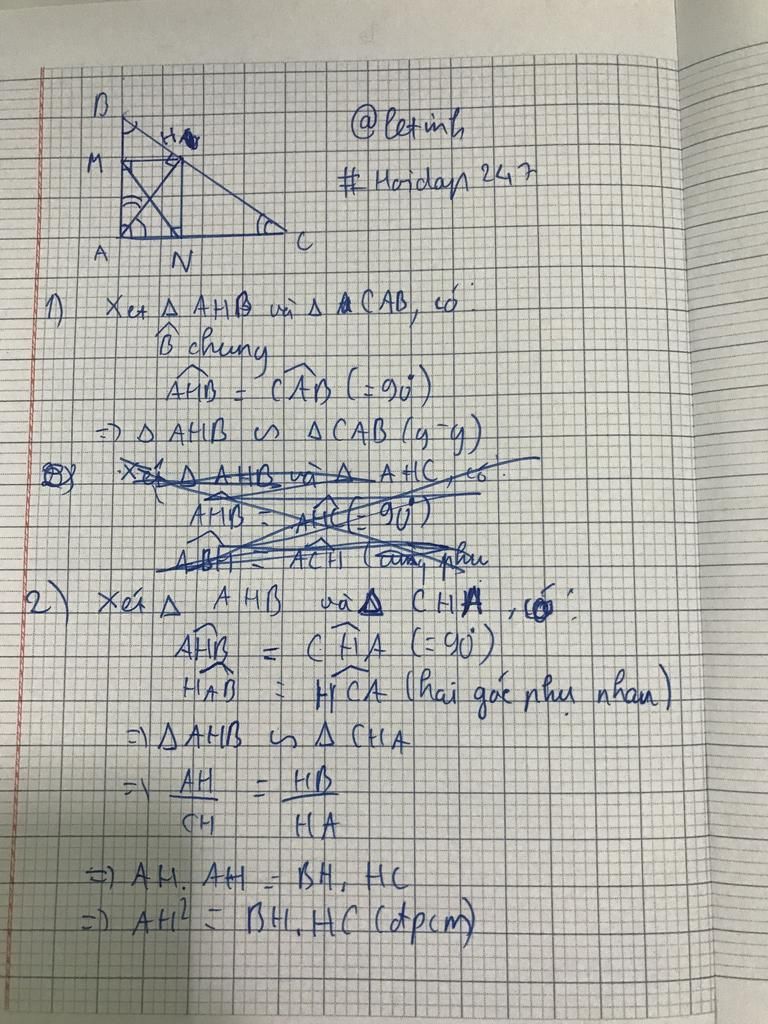 B
H
M
A
N
C
@letinh
# Hoidap 247
1) Xét Δ AHB và Δ CAB, có:
B̂ chung
AHB = CAB (= 90°)
=> Δ AHB ∽ Δ CAB (g-g)
Xét Δ AHB và Δ AHC, có:
AHB = AHC (= 90°)
ABH = ACH (cùng phụ
2) Xét Δ AHB và Δ CHA, có:
AHB = CHA (= 90°)
HAB = HCA (hai góc phụ nhau)
=> Δ AHB ∽ Δ CHA
=> AH/CH = HB/HA
=> AH. AH = BH. HC
=> AH² = BH. HC (đpcm)